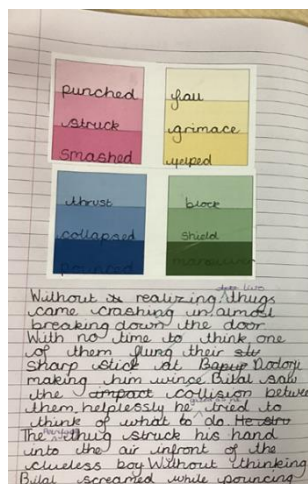 punched
struck
smashed
fall
grimace
yelped
thrust
collapsed
pounced
block
shield
Without realizing two thugs
came crashing in almost
breaking down the door
With no time to think one
of them flung their
sharp stick at Dodoji
making him wince. Bilal saw
the impact collision between
them, helplessly he tried to
think of what to do. He
The thug struck his hand
into the air infront of the
clueless boy. Without thinking
Bilal screamed while pouncing